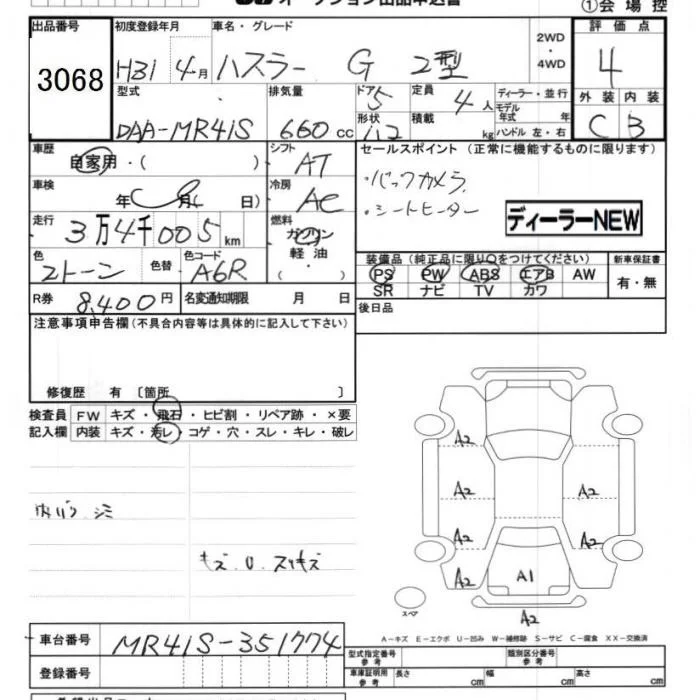 オークション出品申込書 ①会場控
出品番号 初度登録年月 車名・グレード 2WD・4WD 評価点
3068 H31 4月 ハスラー G 2型 4
型式 排気量 ドア 5 定員 4人 ディーラー・並行
モデル年式 年 外装 内装
DAA-MR41S 660cc 形状 積載 kg ハンドル 左・右 C B
車歴 自家用・( ) シフト AT セールスポイント (正常に機能するものに限ります)
車検 年 月 日) 冷房 AC ・バックカメラ
・シートヒーター
走行 3万4千005km 燃料 ガソリン ディーラーNEW
軽油
・( )
色 2トーン 色替 色コード A6R 装備品 (純正品に限り○をつけてください) 新車保証書
PS PW ABS エアB AW 有・無
SR ナビ TV カワ
R券 8,400円 名変通知期限 月 日 後日品
注意事項申告欄 (不具合内容等は具体的に記入して下さい)
修復歴 有 〔箇所 〕
検査員 FW キズ・飛石・ヒビ割・リペア跡・×要
記入欄 内装 キズ・汚レ・コゲ・穴・スレ・キレ・破レ
A2
A2 A2
内バリ シミ
A2 A2
キズ・U・スリキズ
A2 A1
スペア
A2
A-キズ E-エクボ U-凹み W-補修跡 S-サビ C-腐食 XX-交換済
車台番号 MR41S-351774
型式指定番号 参考 類別区分番号 参考
登録番号 車庫証明用 参考 長さ cm 幅 cm 高さ cm